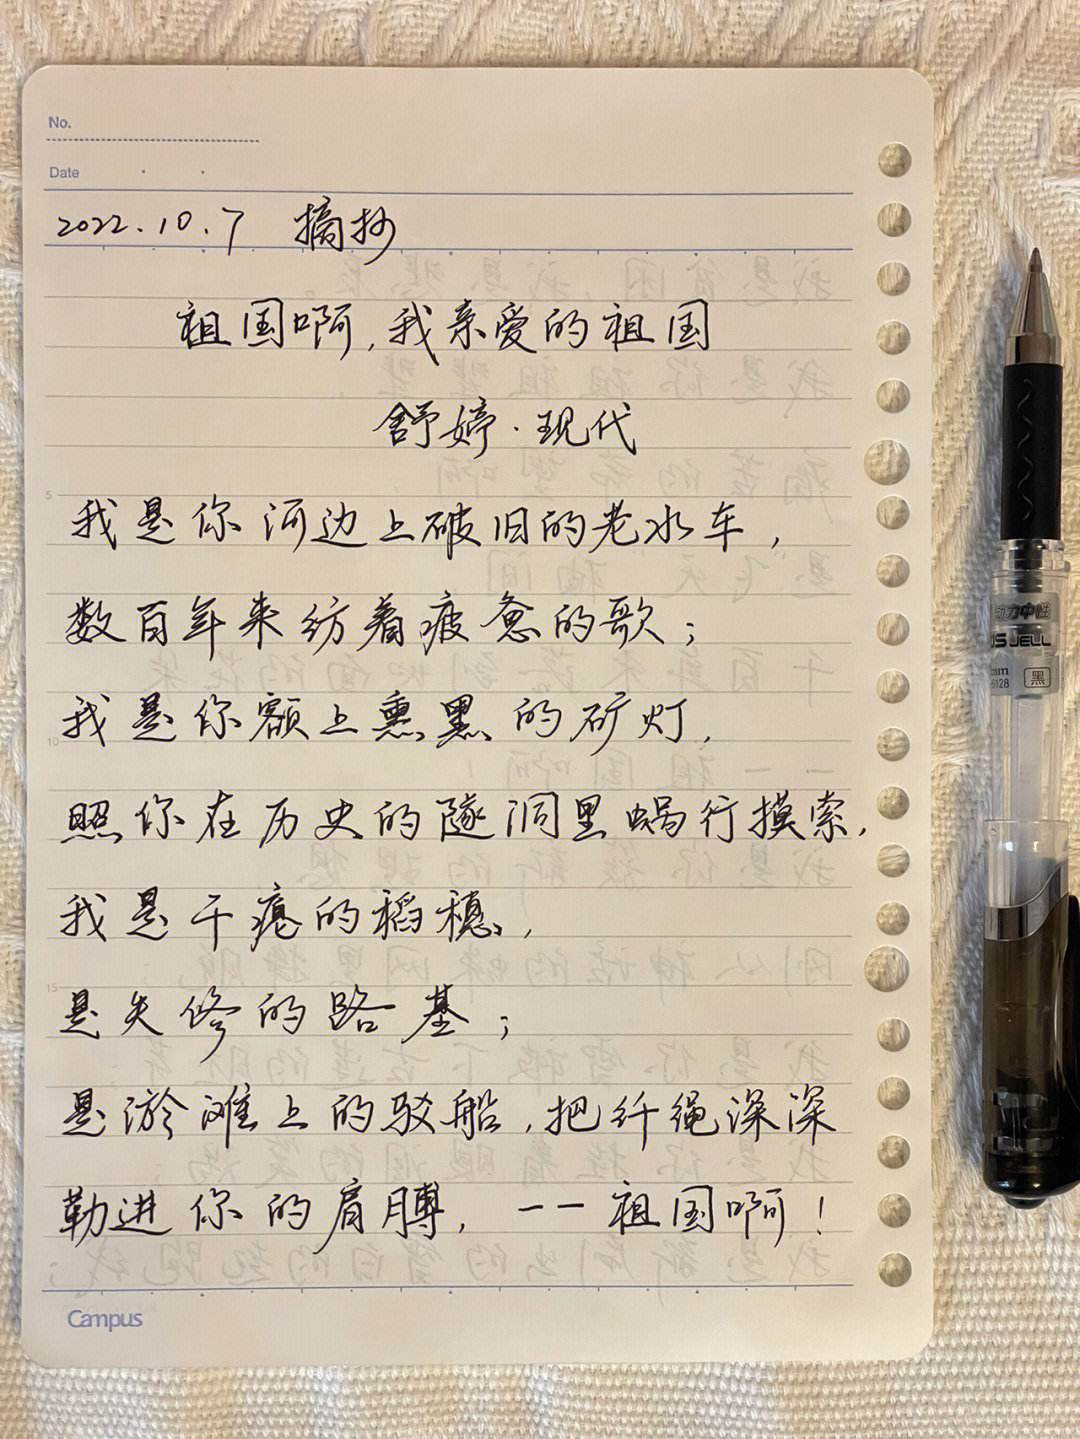 No.
Date
2022.10.7 摘抄
祖国啊,我亲爱的祖国
舒婷·现代
5
我是你河边上破旧的老水车,
数百年来纺着疲惫的歌;
我是你额上熏黑的矿灯,
10
照你在历史的隧洞里蜗行摸索,
我是干瘪的稻穗,
15
是失修的路基;
是淤滩上的驳船,把纤绳深深
勒进你的肩膊,一一祖国啊!
Campus
动力中性
US JELL
黑